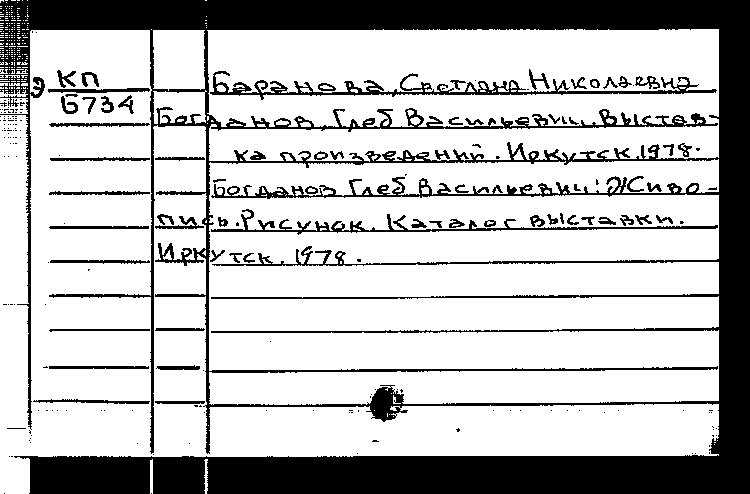 Э КП
Б734
Баранова, Светлана Николаевна
Богданов, Глеб Васильевич. Выстав-
ка произведений. Иркутск. 1978.
Богданов Глеб Васильевич: Живо-
пись. Рисунок. Каталог выставки.
Иркутск. 1978.